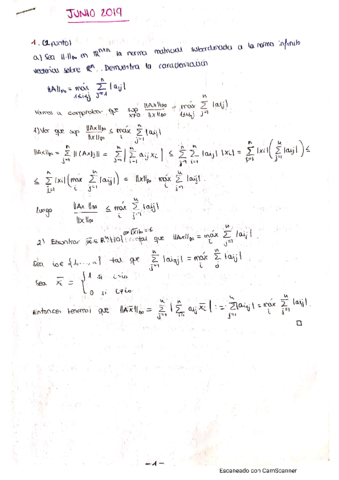 JUNIO 2019
1. (2 puntos)
a) Sea ||·||∞ en ℝⁿˣⁿ la norma matricial subordinada a la norma infinito
vectorial sobre ℝⁿ. Demuestra la caracterización
||A||∞ = máx_{1≤i≤n} Σ_{j=1}^n |aij|
Vamos a comprobar que sup_{x≠0} ||Ax||∞ / ||x||∞ = máx_{1≤i≤n} Σ_{j=1}^n |aij|
1) Ver que sup ||Ax||∞ / ||x||∞ ≤ máx_i Σ_{j=1}^n |aij|
||Ax||∞ = Σ_{j=1}^n |(Ax)j| = Σ_{j=1}^n | Σ aij xi | ≤ Σ_{j=1}^n Σ |aij| |xi| = Σ |xi| ( Σ_{j=1}^n |aij| ) ≤
≤ Σ |xi| ( máx_i Σ_{j=1}^n |aij| ) = ||x||∞ máx_i Σ_{j=1}^n |aij|
luego ||Ax||∞ / ||x||∞ ≤ máx_i Σ_{j=1}^n |aij|
2) Encontrar x̄ ∈ ℝⁿ\{0} tal que ||Ax̄||∞ = máx_i Σ_{j=1}^n |aij|
Sea i₀ ∈ {1,...,n} tal que Σ_{j=1}^n |ai₀j| = máx_i Σ |aij|
Sea x̄i = { 1 si i=i₀
0 si i≠i₀
Entonces tenemos que ||Ax̄||∞ = Σ_{j=1}^n | Σ aij x̄i | = Σ_{j=1}^n |ai₀j| = máx_i Σ_{j=1}^n |aij|
□
-1-
Escaneado con CamScanner